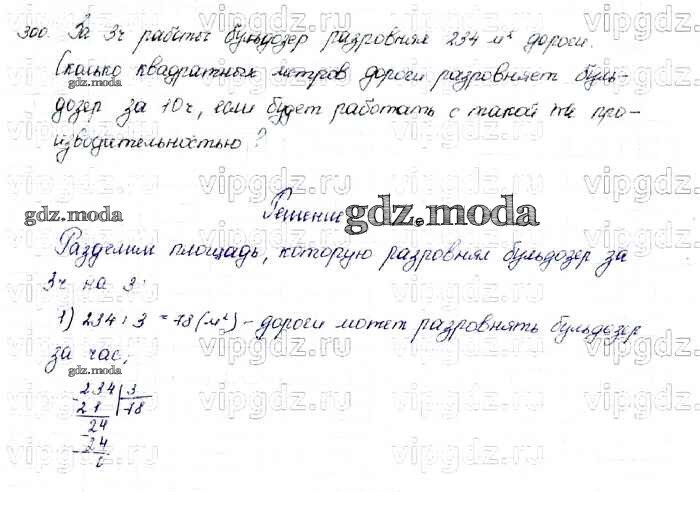 300. За 3ч работы бульдозер разровнял 234 м² дороги.
Сколько квадратных метров дороги разровняет буль-
gdz.moda
дозер за 10ч, если будет работать с такой же про-
изводительностью?
Решение
gdz.moda
gdz.moda
Разделим площадь, которую разровнял бульдозер за
3ч на 3:
1) 234 : 3 = 78 (м²) - дороги может разровнять бульдозер
за час;
gdz.moda
234 | 3
21 | 78
24
24
0
vipgdz.ru vipgdz.ru vipgdz.ru vipgdz.ru